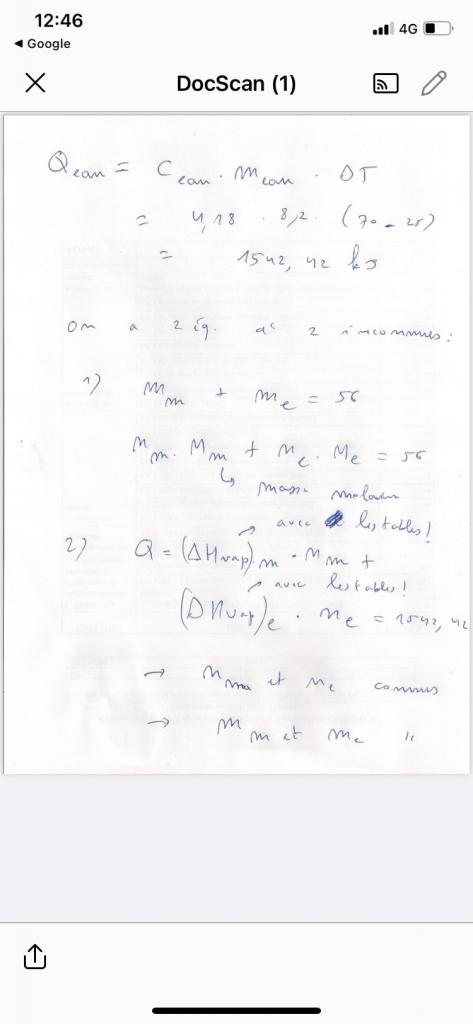 12:46
4G
◄ Google
DocScan (1)
Qeau = Ceau . meau . DT
= 4,18 . 8,2 . (70 - 25)
= 1542,42 kJ
on a 2 éq. à 2 inconnues :
1) mm + me = 56
nm . Mm + ne . Me = 56
↳ masse molaire
avec les tables !
2) Q = (ΔHvap)m . nm +
avec les tables !
(DHvap)e . ne = 1542,42
→ nm et ne connus
→ mm et me "